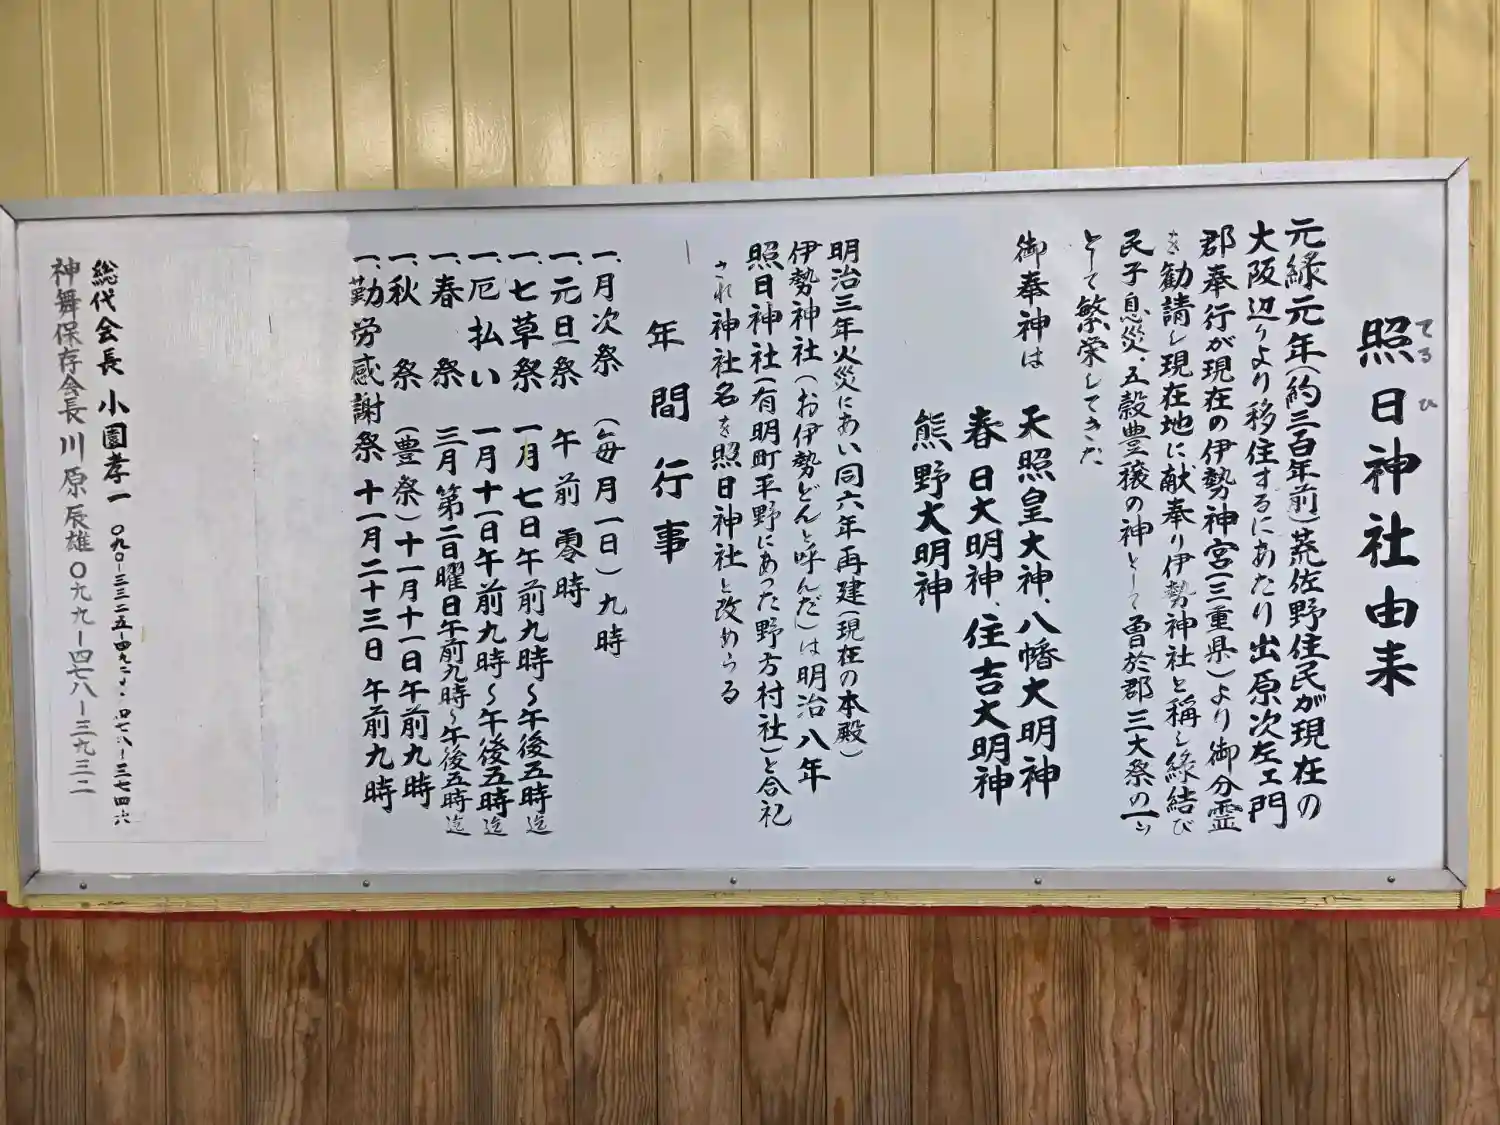 照日神社由来
てるひ
元緑元年(約三百年前)荒佐野住民が現在の
大阪辺りより移住するにあたり出原次左ェ門
郡奉行が現在の伊勢神宮(三重県)より御分霊
を勧請し現在地に献奉り伊勢神社と稱し縁結び
民子息災、五穀豊穣の神として曽於郡三大祭の一つ
として繁栄してきた
御奉神は 天照皇大神、八幡大明神
春日大明神、住吉大明神
熊野大明神
明治三年火災にあい同六年再建(現在の本殿)
伊勢神社(お伊勢どんと呼んだ)は明治八年
照日神社(有明町平野にあった野方村社)と合祀
され神社名を照日神社と改めらる
年間行事
一、月次祭 (毎月一日)九時
一、元旦祭 午前零時
一、七草祭 一月七日午前九時~午後五時迄
一、厄払い 一月十一日午前九時~午後五時迄
一、春祭 三月第二日曜日午前九時~午後五時迄
一、秋祭 (豊祭)十一月十一日午前九時
一、勤労感謝祭 十一月二十三日午前九時
総代会長 小園孝一
神舞保存会長川原辰雄〇九九-四七八-三九三二